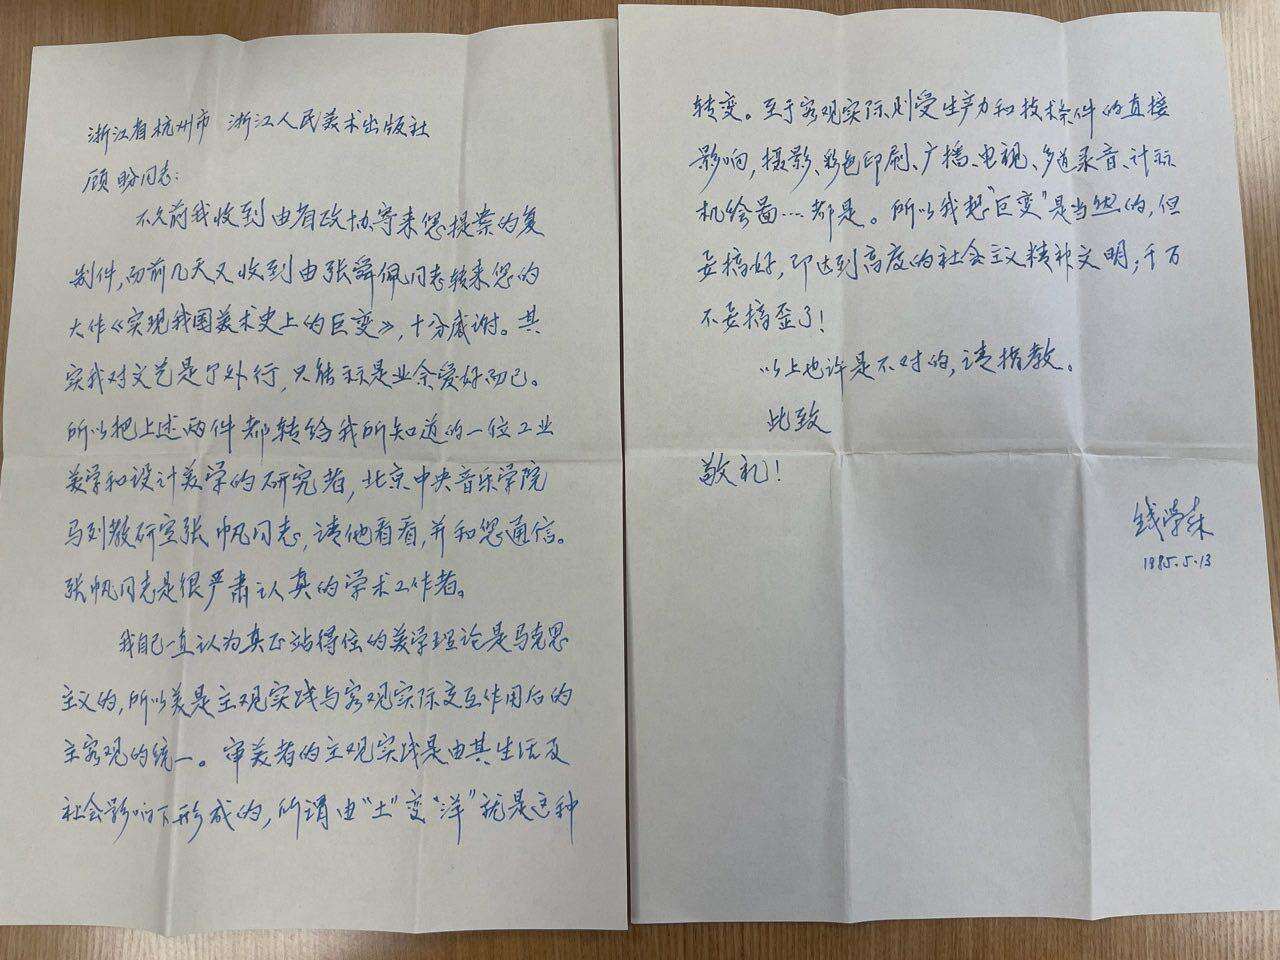 浙江省杭州市 浙江人民美术出版社
顾盼同志：
不久前我收到由省政协寄来您提案的复
制件，而前几天又收到由张舜佩同志转来您的
大作《实现我国美术史上的巨变》，十分感谢。其
实我对文艺是个外行，只能算是业余爱好而已。
所以把上述两件都转给我所知道的一位工业
美学和设计美学的研究者，北京中央音乐学院
马列教研室张帆同志，请他看看，并和您通信。
张帆同志是很严肃认真的学术工作者。
我自己一直认为真正站得住的美学理论是马克思
主义的，所以美是主观实践与客观实际交互作用后的
主客观的统一。审美者的主观实践是由其生活及
社会影响下形成的，所谓由“土”变“洋”就是这种
转变。至于客观实际则受生产力和技术条件的直接
影响，摄影、彩色印刷、广播、电视、多道录音、计算
机绘图……都是。所以我想“巨变”是当然的，但
要搞好，即达到高度的社会主义精神文明；千万
不要搞歪了！
以上也许是不对的，请指教。
此致
敬礼！
钱学森
1985.5.13